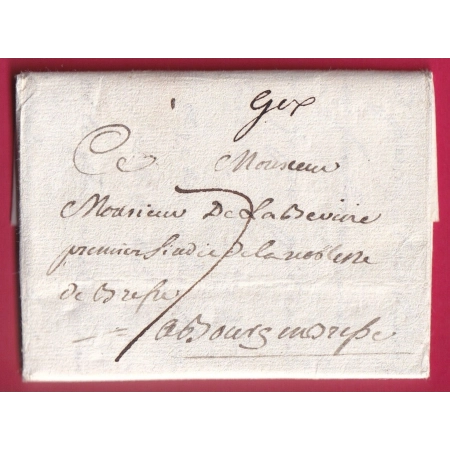 Gex
A Monsieur
Monsieur De la Beviere
premier sindic de la noblesse
de Bresse
7
A Bourg en Bresse